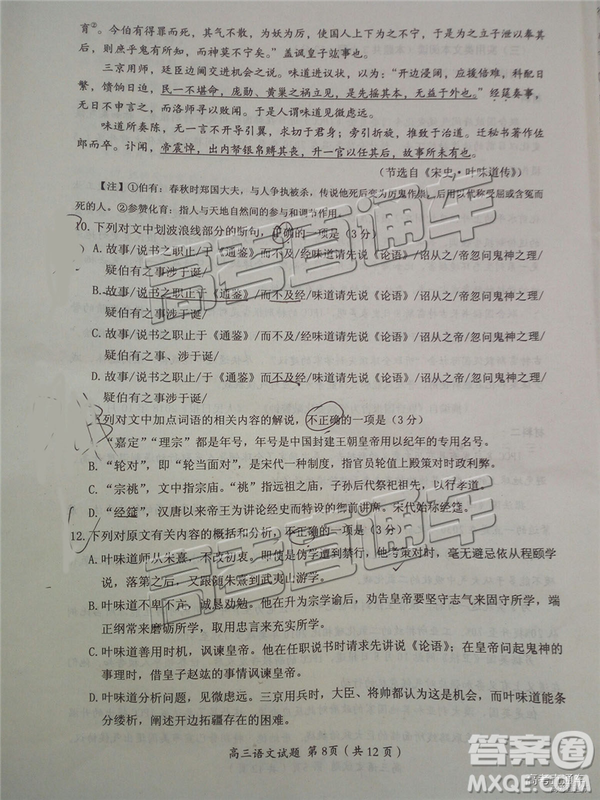 育②。今伯有得罪而死，其气不散，为妖为厉，使国人上下为之不宁，于是为之立子泄以奉其
后，则庶乎鬼有所知，而神莫不宁矣。”盖讽皇子竑事也。
三京用师，廷臣边阃交进机会之说。味道进议状，以为：“开边浸阔，应援倍难，科配日
繁，馈饷日迫，民一不堪命，庞勋、黄巢之祸立见，是先摇其本，无益于外也。”经筵奏事，
无日不申言之，而洛师寻以败闻。于是人谓味道见微虑远。
味道所奏陈，无一言不开导引翼，求切于君身；旁引折旋，推致于治道。迁秘书著作佐
郎而卒。讣闻，帝震悼，出内帑银帛赙其丧，升一官以任其后，故事所未有也。
（节选自《宋史·叶味道传》）
【注】①伯有：春秋时郑国大夫，与人争执被杀，传说他死后变为厉鬼作祟，后用以代称受屈或含冤而
死的人。②参赞化育：指人与天地自然间的参与和调节作用。
10. 下列对文中划波浪线部分的断句，正确的一项是（3分）
A. 故事/说书之职止于《通鉴》而不及经/味道请先说《论语》/诏从之/帝忽问鬼神之理/
疑伯有之事涉于诞/
B. 故事/说书之职止/于《通鉴》而不及经/味道请先说《论语》/诏从之/帝忽问鬼神之理/
疑伯有之事涉于诞/
C. 故事/说书之职止于《通鉴》/而不及经味道请先说《论语》/诏从之/帝忽问鬼神之理/
疑伯有之事、涉于诞/
D. 故事/说书之职止/于《通鉴》而不及经/味道请先说《论语》/诏从之帝/忽问鬼神之理/
疑伯有之事涉于诞/
列对文中加点词语的相关内容的解说，不正确的一项是（3分）
A. “嘉定”“理宗”都是年号，年号是中国封建王朝皇帝用以纪年的专用名号。
B. “轮对”，即“轮当面对”，是宋代一种制度，指官员轮值上殿策对时政利弊。
C. “宗桃”，指宗庙。“祧”指远祖之庙，子孙后代祭祀祖先的场所。
D. “经筵”，汉唐以来帝王为讲论经史而特设的御前讲席。宋代始称经筵。
12. 下列对原文有关内容的概括和分析，不正确的一项是（3分）
A. 叶味道师从朱熹，不改初衷。即使是伪学禁令兴起，他对策时，毫无避忌依从程颐学
说，落第之后，又跟随朱熹到武夷山游学。
B. 叶味道非常有才，诚恳劝勉。他在升为太学博士时，劝告皇帝要坚守志气来巩固所学，端
正纲常来磨砺所学，用实际言行来充实所学。
C. 叶味道善用时机，讽谏皇帝。他在任职说书时请求先讲说《论语》；在皇帝问起鬼神的
事理时，借皇子赵竑的事情讽谏皇帝。
D. 叶味道分析问题，见微虑远。三京用兵时，大臣、将帅都认为这是个机会，而叶味道能条
分缕析，阐述开边拓疆存在的困难。
高三语文试题 第8页（共12页）
高考直通车
答案圈